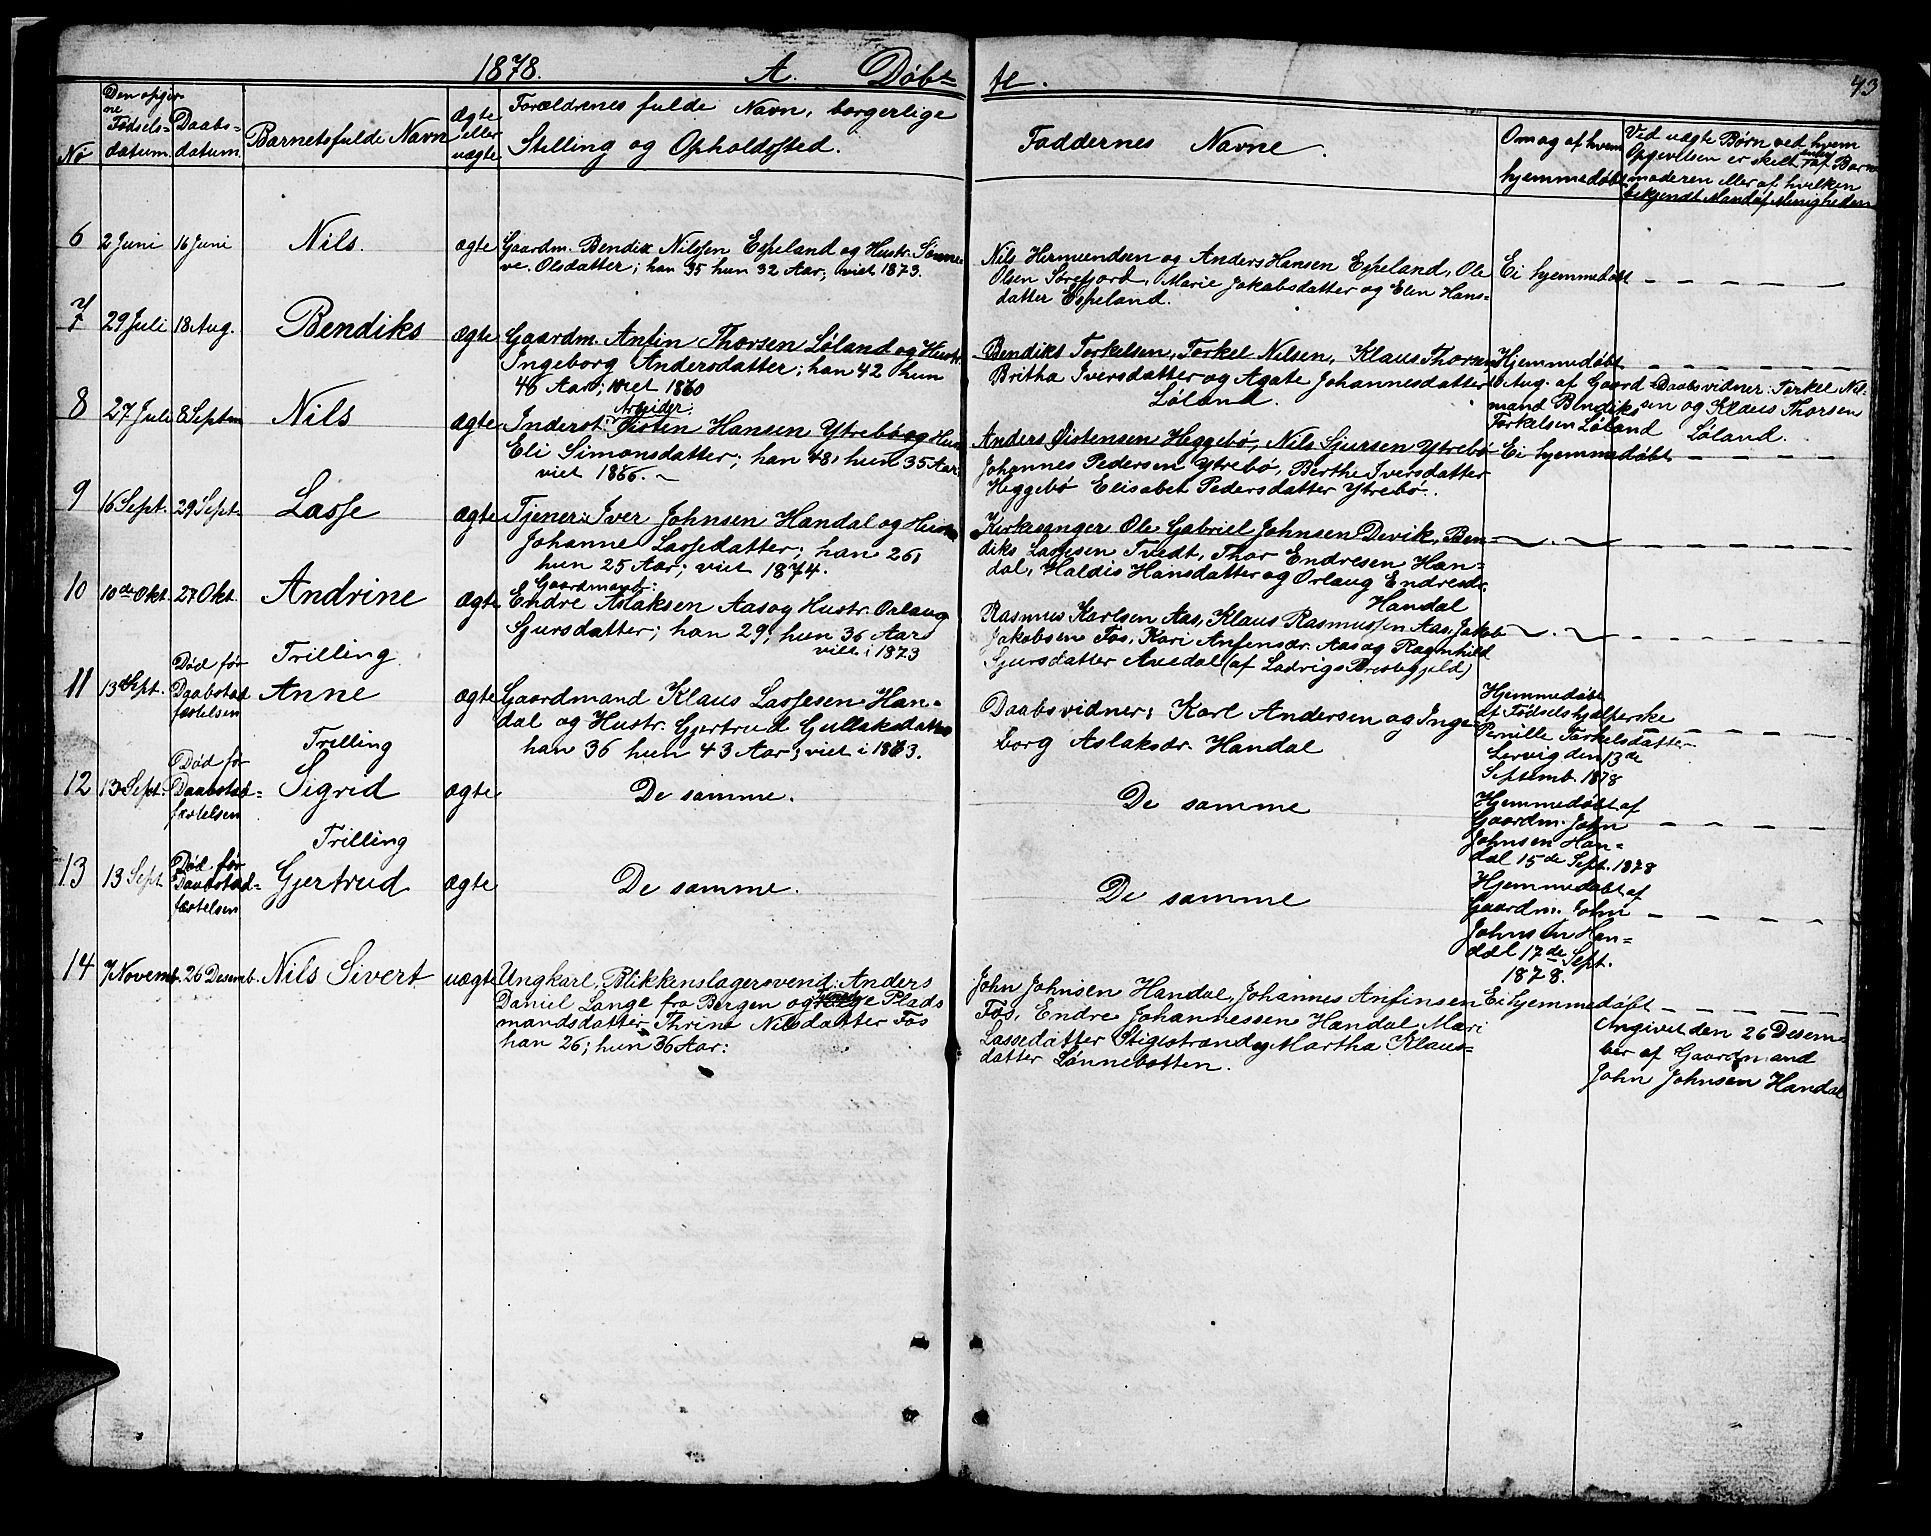 1878. A. Døbte. 43
No
Den opgivne Fødselsdatum
Daabsdatum
Barnets fulde Navn
ægte eller uægte
Forældrenes fulde Navn, borgerlige
Stilling og Opholdssted.
Faddernes Navne.
Om og af hvem
hjemmedøbt
Ved uægte Børn ved hvem
Opgivelsen er skeet enten af Barne
moderen eller af hvilken
bekjendt Mand af Menigheden
6 2 Juni 16 Juni Nils. ægte
Gaardm. Bendix Nilssen Espeland og Hustr. Sønne
ve. Olsdatter; han 35 hun 32 Aar; viet 1873.
Nils Hermundsen og Anders Hansen Espeland, Ole
Olsen Sørefjord, Marie Jakobsdatter og Elen Hans-
datter Espeland.
Ei hjemmedøbt
7 29 Juli 18 Aug. Bendiks ægte
Gaardm. Anfin Thorsen Løland og Hustr.
Ingeborg Andersdatter; han 42 hun
46 Aar; viet 1860
Bendiks Torkelsen, Torkel Nilsen, Klaus Thorsen
Britha Iversdatter og Agate Johannesdatter
Løland.
Hjemmedøbt
6 Aug. af Gaard
mand Bendiks
Torkelsen Løland
Daabsvidner: Torkel Nil-
sen og Klaus Thorsen
Løland.
8 27 Juli 8 Septm Nils ægte
Arbeider.
Inderst: Øisten Hansen Ytrebø og Hus
Eli Simonsdatter; han 48, hun 35 Aar
viet 1866.
Anders Øistensen Heggebø, Nils Sjursen Ytrebø
Johannes Pedersen Ytrebø, Berthe Iversdatter
Heggebø Elisabet Pedersdatter Ytrebø.
Ei hjemmedøbt
9 16 Sept. 29 Sept. Lasse ægte
Tjener: Iver Johnsen Handal og Hustr
Johanne Lassedatter; han 26,
hun 25 Aar; viet 1874.
Kirkesanger Ole Gabriel Johnsen Devik, Ben-
diks Lassesen Tvedt, Thor Endresen Han-
dal, Haldis Hansdatter og Orlaug Endresdr.
Handal
10 10de Okt. 27 Okt. Andrine ægte
Gaardmand:
Endre Aslaksen Aas og Hustr. Orlaug
Sjursdatter; han 29, hun 36 Aar
viet i 1873
Rasmus Karlsen Aas, Klaus Rasmussen Aas, Jakob
Jakobsen Fos, Kari Anfinsdr. Aas og Ragnhild
Sjursdatter Avedal (af Ladvigs Præstegjeld)
11 13de Sept. Død før
Daabstad
fæstelsen
Trilling
Anne ægte
Gaardmand Klaus Lassesen Han-
dal og Hustr. Gjertrud Gullaksdatter
han 36 hun 43 Aar; viet i 1863.
Daabsvidner: Karl Andersen og Inge-
borg Aslaksdr. Handal
Hjemmedøbt
af Fødselshjælperske
Pernille Torkelsdatter
Lervig den 13de
Septemb. 1878
12 13 Sept. Død før
Daabstad-
fæstelsen
Trilling
Sigrid ægte De samme. De samme
Hjemmedøbt af
Gaardm. John
Johnsen Han-
dal 15de Sept. 1878
13 13 Sept Død før
Daabstad-
fæstelsen
Trilling
Gjertrud ægte De samme. De samme
Hjemmedøbt af
Gaardm. John
Johnsen Han-
dal 17de Sept.
1878.
14 7 Novemb. 26 Desemb. Nils Sivert uægte
Ungkarl, Blikkenslagersvend: Anders
Daniel Lange fra Bergen og Plads
mandsdatter Thrine Nilsdatter Fos
han 26; hun 36 Aar:
John Johnsen Handal, Johannes Anfinsen
Fos, Endre Johannessen Handal, Mari
Lassedatter Stigestrand og Martha Klaus-
datter Lønnebotten.
Ei hjemmedøbt
Angivet den 26 Desem-
ber af Gaardmand
John Johnsen Handal